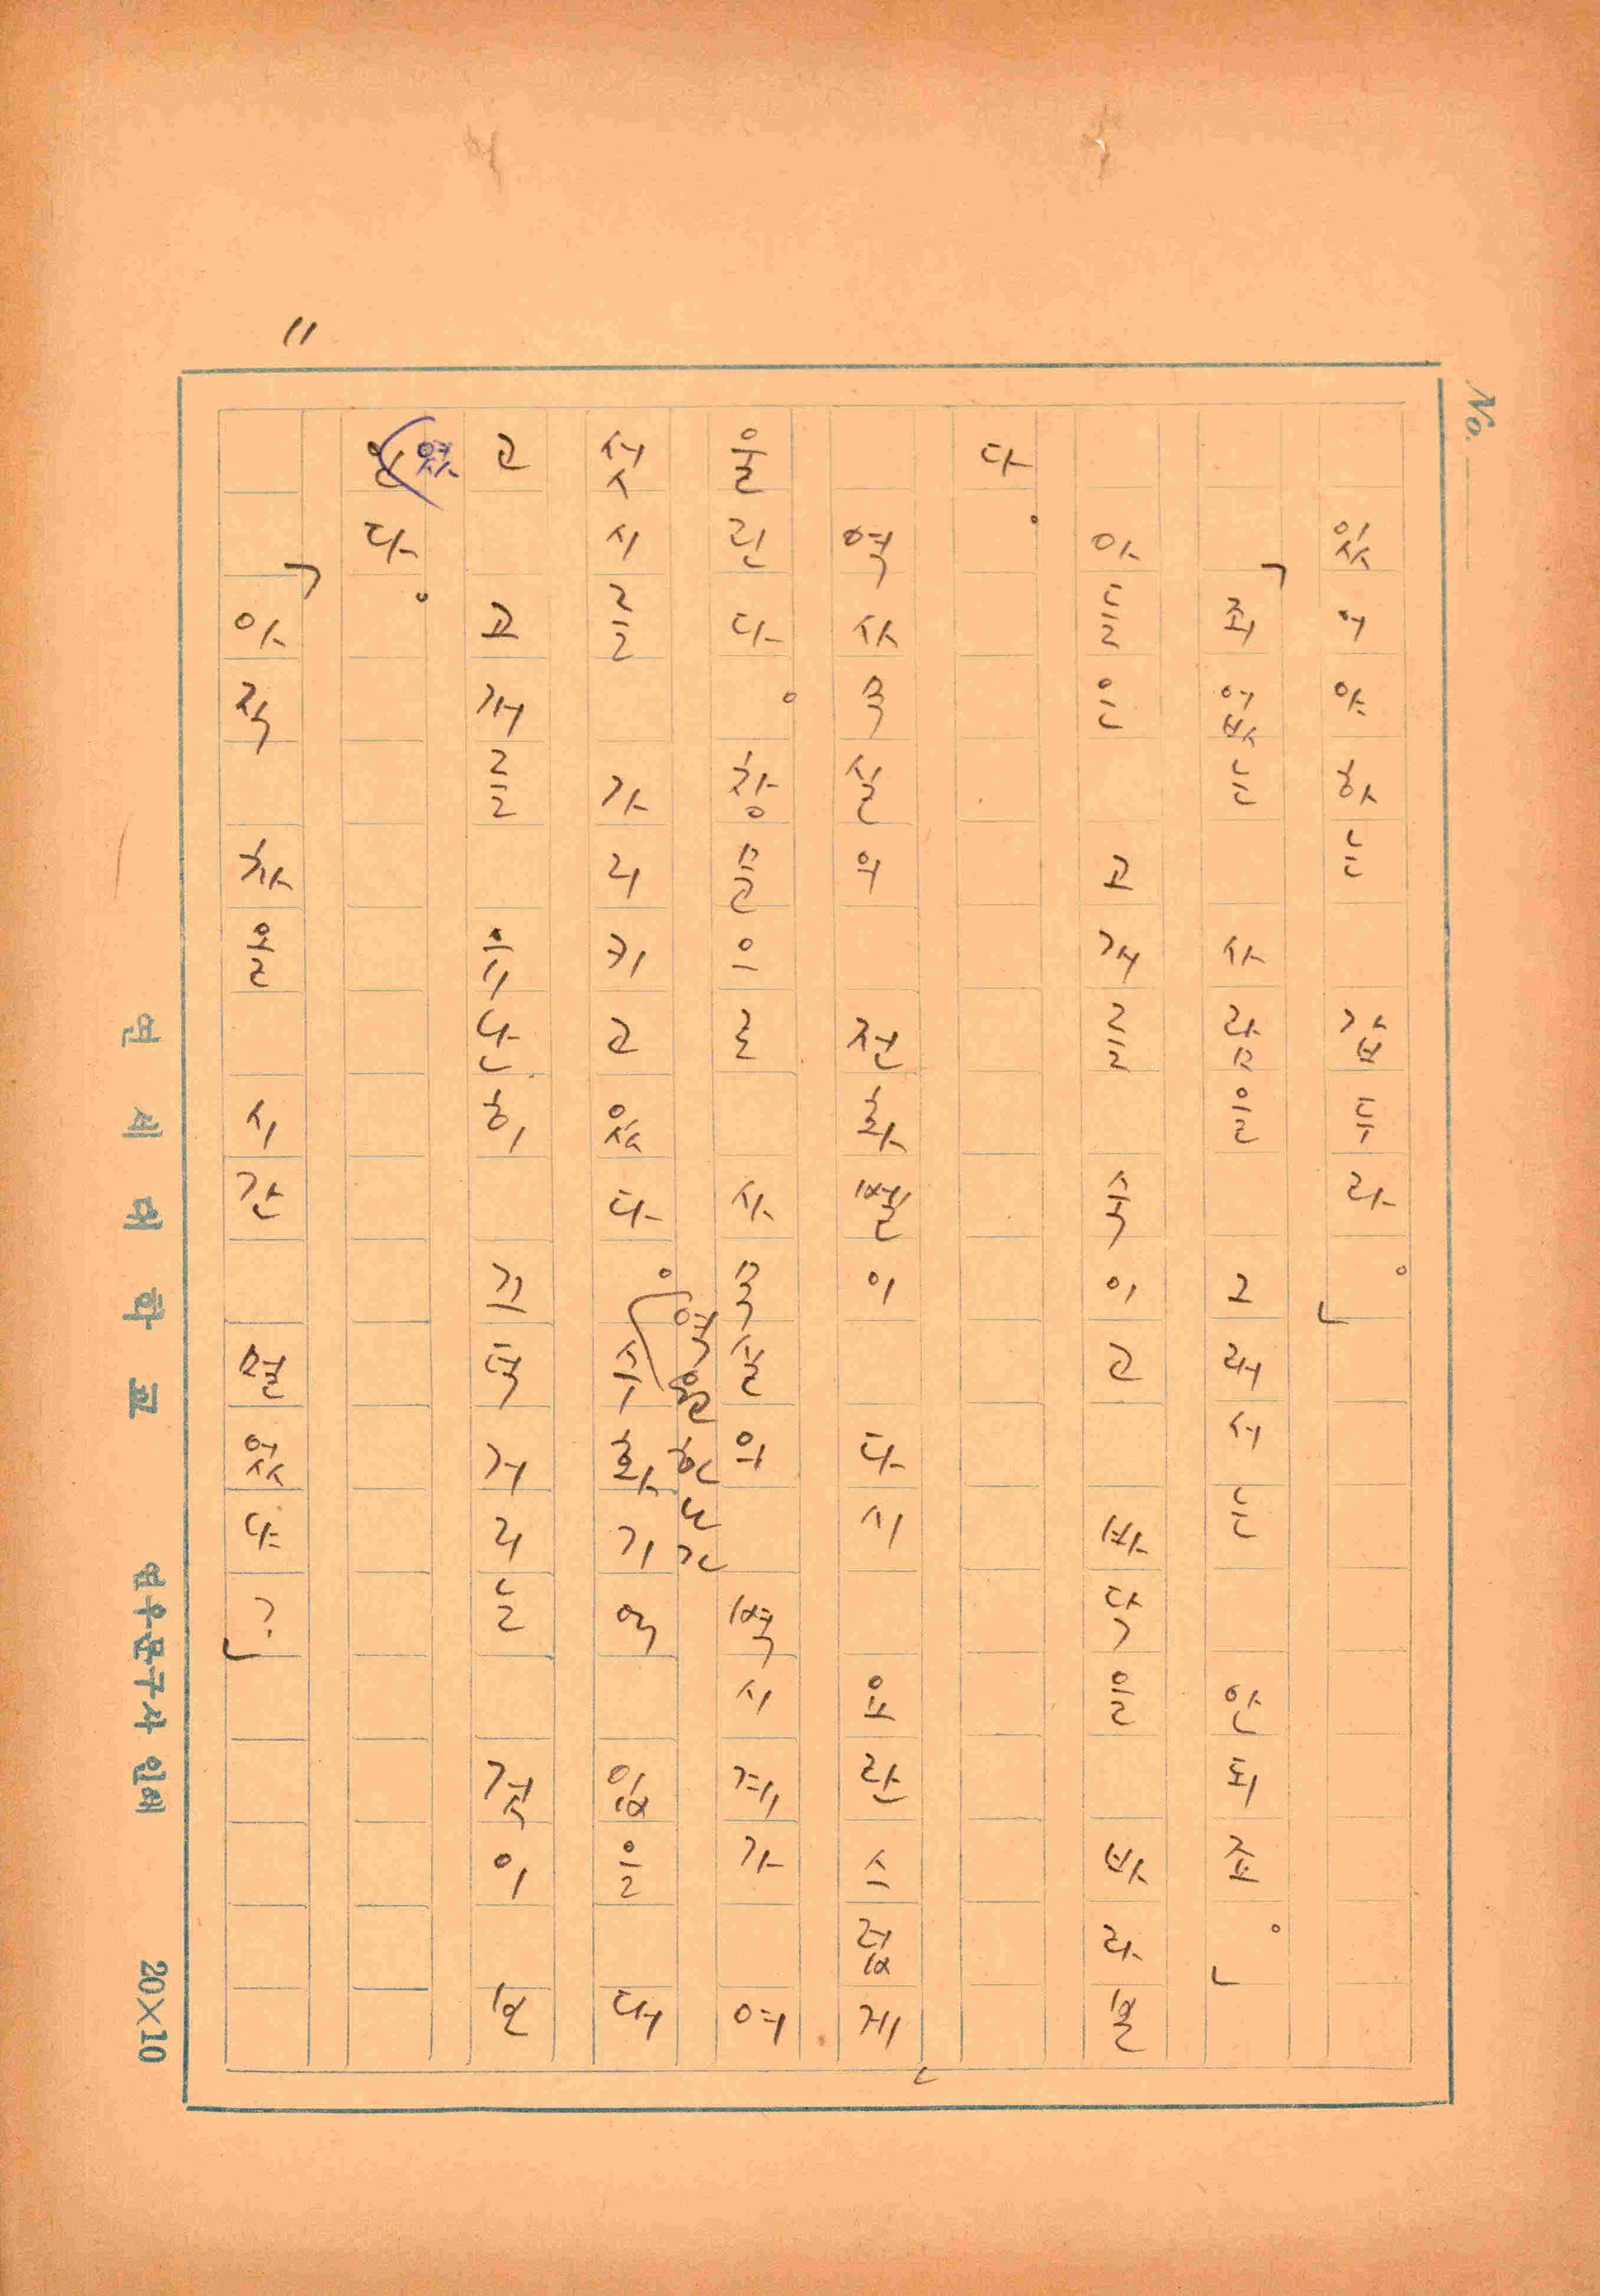 있어야하는 갑두라。」
「죄없는 사람을 그래서는 안되죠。」
아들은 고개를 숙이고 바닥을 바라본
다。
역사무실의 전화벨이 다시 요란스럽게
울린다。 창문으로 사무실의 벽시계가 여
섯시를 가리키고 있다。 역원 수화기에 입을 대
고 고개를 유난히 끄덕거리는 것이 보
였
인다。
「아직 차올 시간 멀었나?」
11
No.
연세대학교 연우문구사 인쇄 20×10